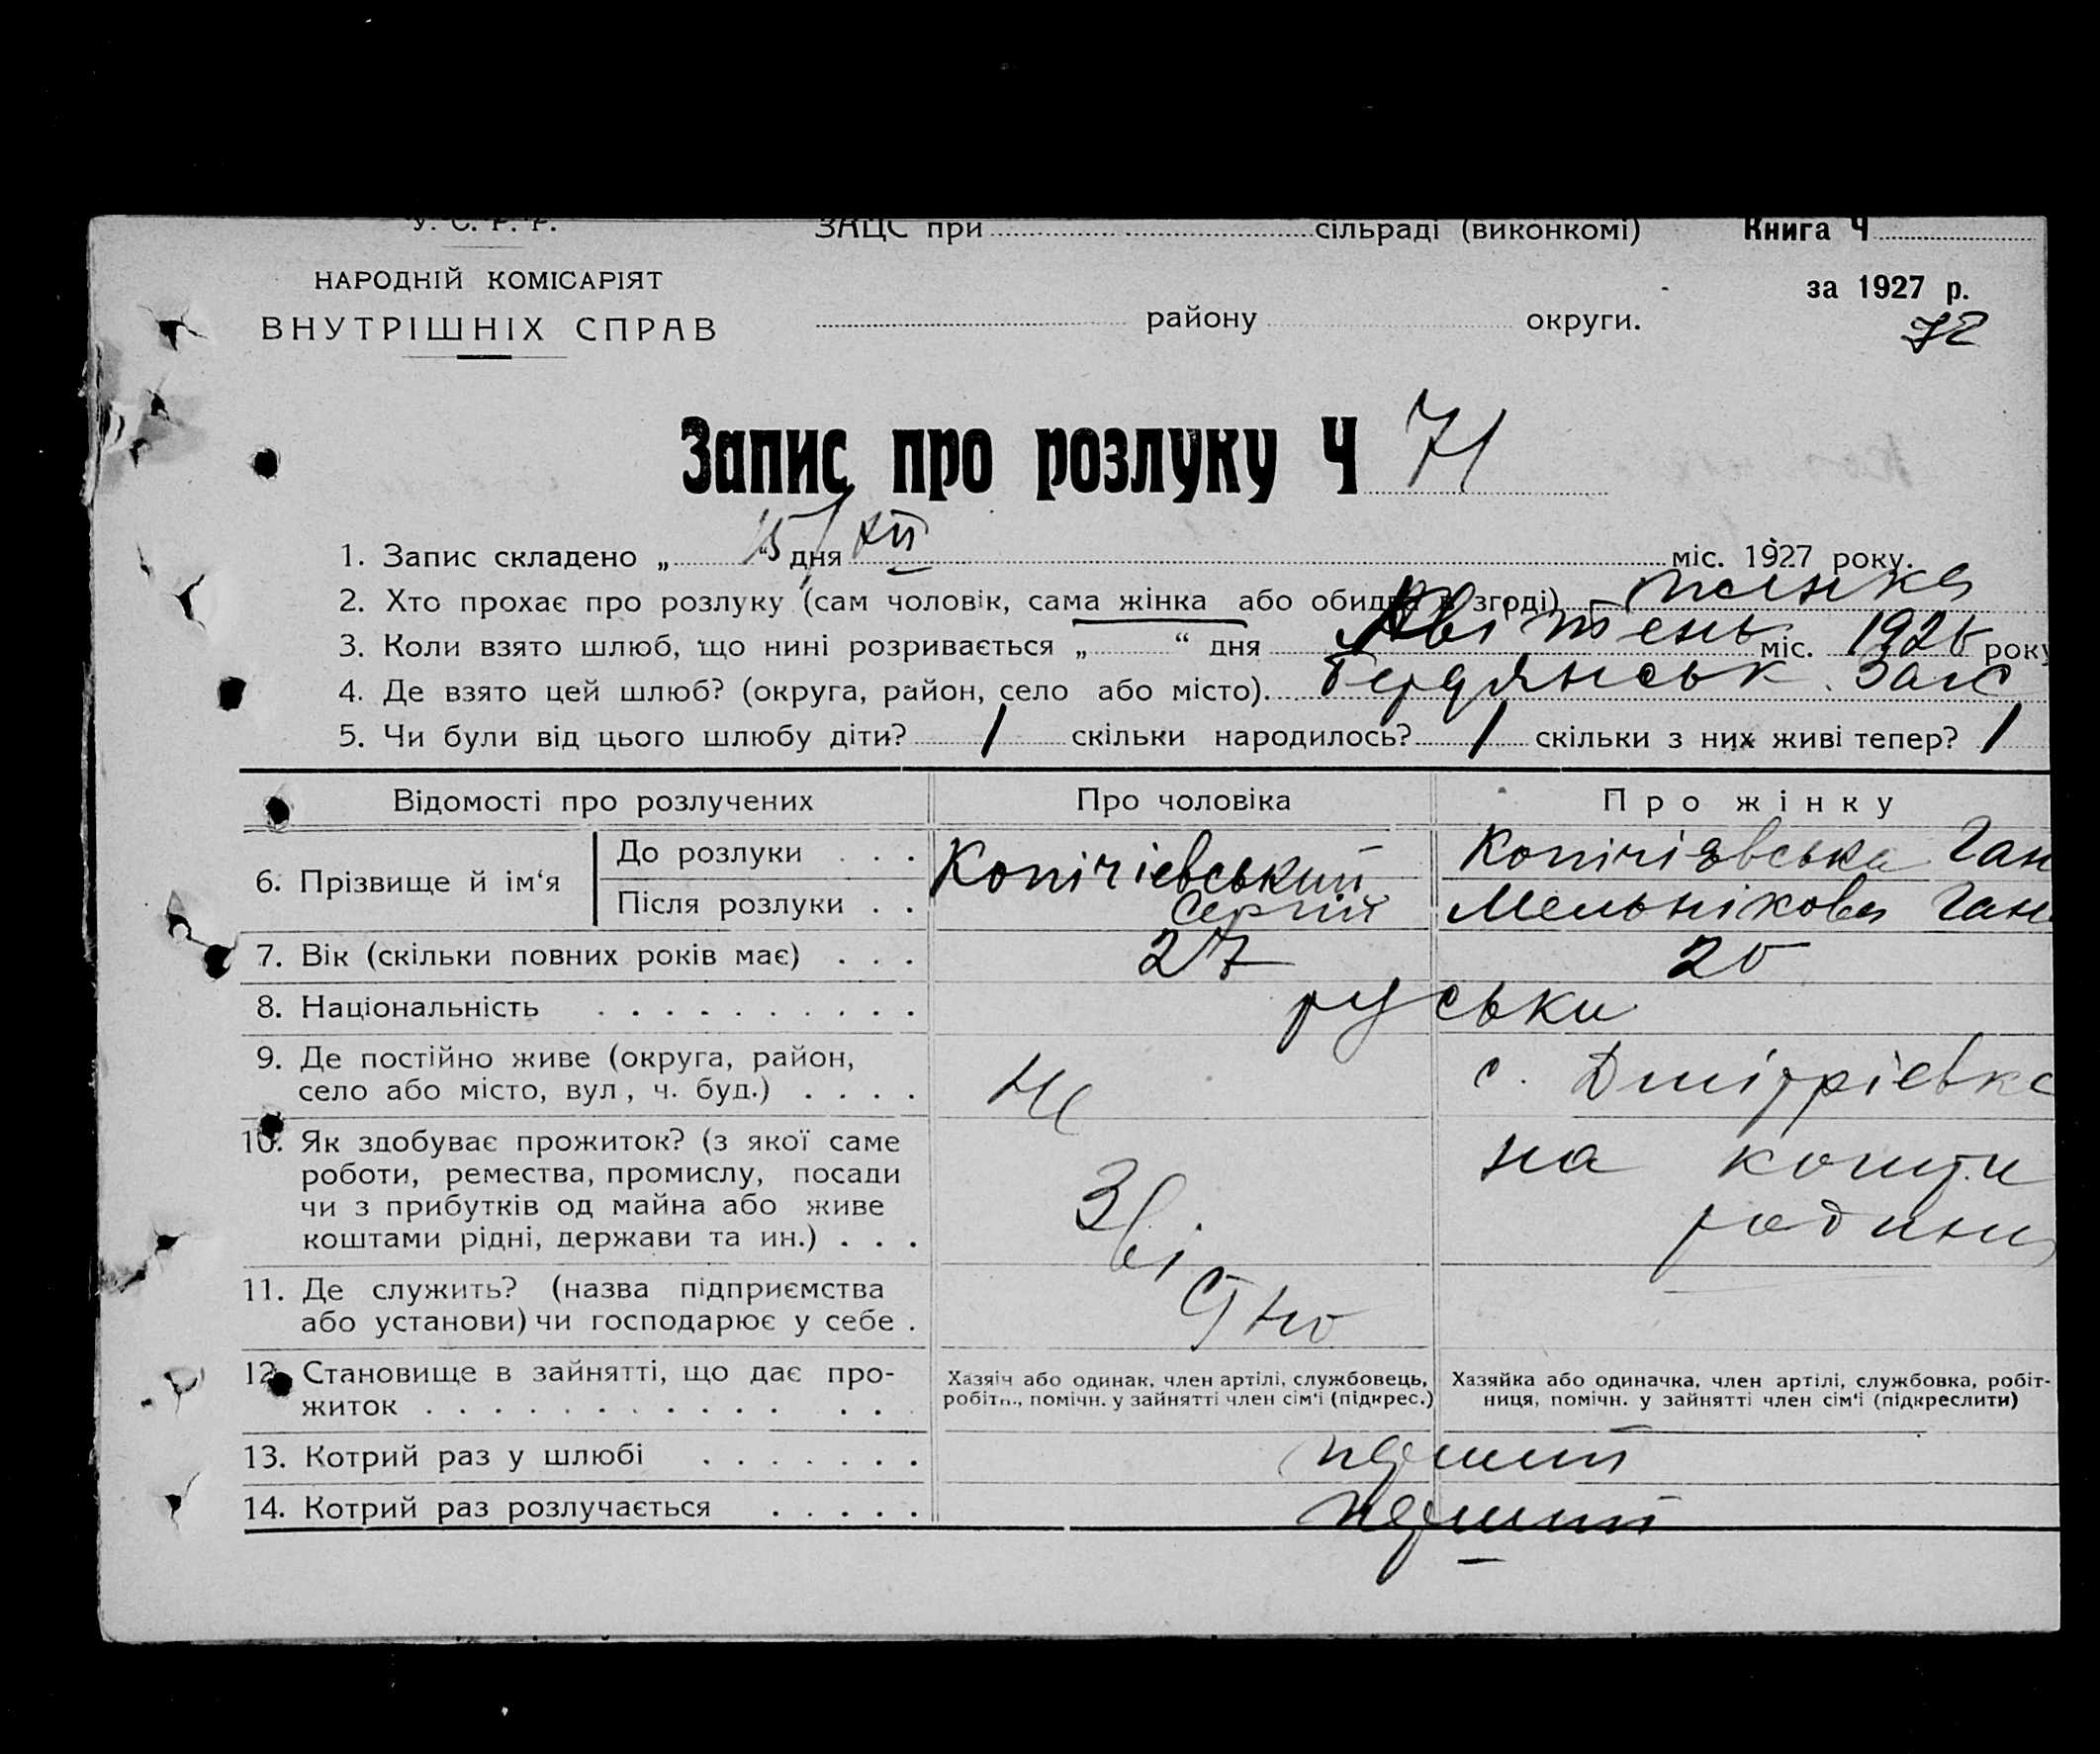 У. С. Р. Р.
ЗАЦС при сільраді (виконкомі)
Книга Ч
НАРОДНІЙ КОМІСАРІЯТ
за 1927 р.
ВНУТРІШНІХ СПРАВ
району округи.
72
Запис про розлуку Ч 71
1. Запис складено „ 15 “ дня XII міс. 1927 року.
2. Хто прохає про розлуку (сам чоловік, сама жінка або обидва в згоді) жінка
3. Коли взято шлюб, що нині розривається „ “ дня Квітень міс. 1926 року
4. Де взято цей шлюб? (округа, район, село або місто). Бердянськ Загс
5. Чи були від цього шлюбу діти? 1 скільки народилось? 1 скільки з них живі тепер? 1
Відомості про розлучених
Про чоловіка
Про жінку
6. Прізвище й ім‘я
До розлуки . . .
Після розлуки . .
Копічіевський
Сергій
Копічіевська Ган
Мельнікова Ган
7. Вік (скільки повних років має) . . .
27
20
8. Національність . . . . . . . . . .
руськи
9. Де постійно живе (округа, район,
село або місто, вул., ч. буд.) . . . .
Не
с. Дмітріевка
10. Як здобуває прожиток? (з якої саме
роботи, ремества, промислу, посади
чи з прибутків од майна або живе
коштами рідні, держави та ин.) . . .
Зві
на кошти
родини
11. Де служить? (назва підприємства
або установи) чи господарює у себе .
стно
12. Становище в зайнятті, що дає про-
житок . . . . . . . . . . . . . .
Хазяїн або одинак, член артілі, службовець,
робітн., помічн. у зайнятті член сім‘ї (підкрес.)
Хазяйка або одиначка, член артілі, службовка, робіт-
ниця, помічн. у зайнятті член сім‘ї (підкреслити)
13. Котрий раз у шлюбі . . . . . . .
перший
14. Котрий раз розлучається . . . . .
перший